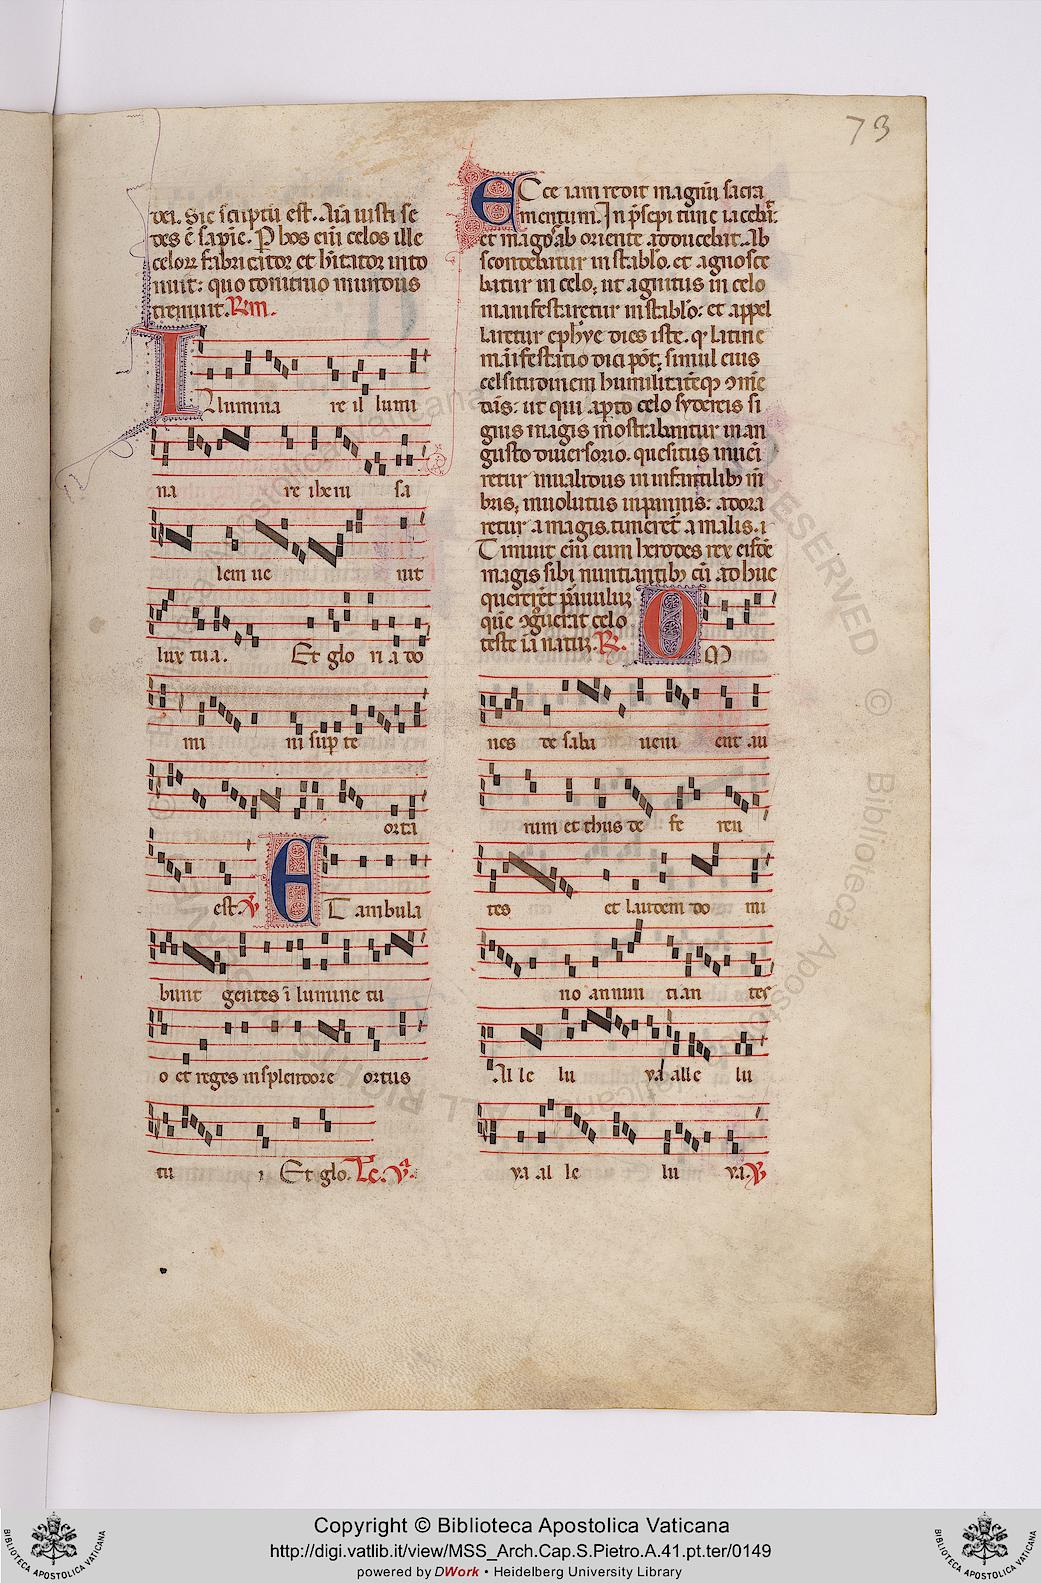 73
dei. Sic scriptũ est. Aĩa iusti se
des ẽ sapĩe. P hos eni celos ille
celoꝝ fabricator et hĩtator into
nuit: quo tonitruo mundus
tremuit. Rm.
Illumina re il lumi
na re iheru sa
lem ue nit
lux tua. Et glo ri a do
mi ni sup te
orta
est. ℣ Et ambula
bunt gentes ĩ lumine tu
o et reges in splendore ortus
tu i Et glo. Te. ℣
Ecce iam redit magnũ sacra
mentum. In p̃sepi tunc iacebat:
et magos ab oriente adducebat. Ab
scondebatur in stablo. et agnosce
batur in celo, ut agnitus in celo
manifestaretur in stablo: et appel
laretur ephye dies iste. qʳ latine
mãifestatio dici põt. simul eius
celsitudinem humilitatẽqꝫ ɔmẽ
dãs: ut qui apto celo sydereis si
gnis magis mostrabantur in an
gusto diuersorio. quesitus inuei
retur inualidus in infantilibꝫ mẽ
bris, inuolutus in pannis: adora
retur a magis. timeret a malis.
Timuit eni eum herodes rex eisdẽ
magis sibi nuntiantibꝫ cũ adhuc
quereret paruuluꝫ
quẽ ɔguerat celo
teste iã natuꝫ. ℟.
OM
nes de saba ueni ent au
rum et thus de fe ren
tes et laudem do mi
no annun ti an tes
Al le lu ya alle lu
ya al le lu ya. ℣
Copyright © Biblioteca Apostolica Vaticana
http://digi.vatlib.it/view/MSS_Arch.Cap.S.Pietro.A.41.pt.ter/0149
powered by DWork • Heidelberg University Library